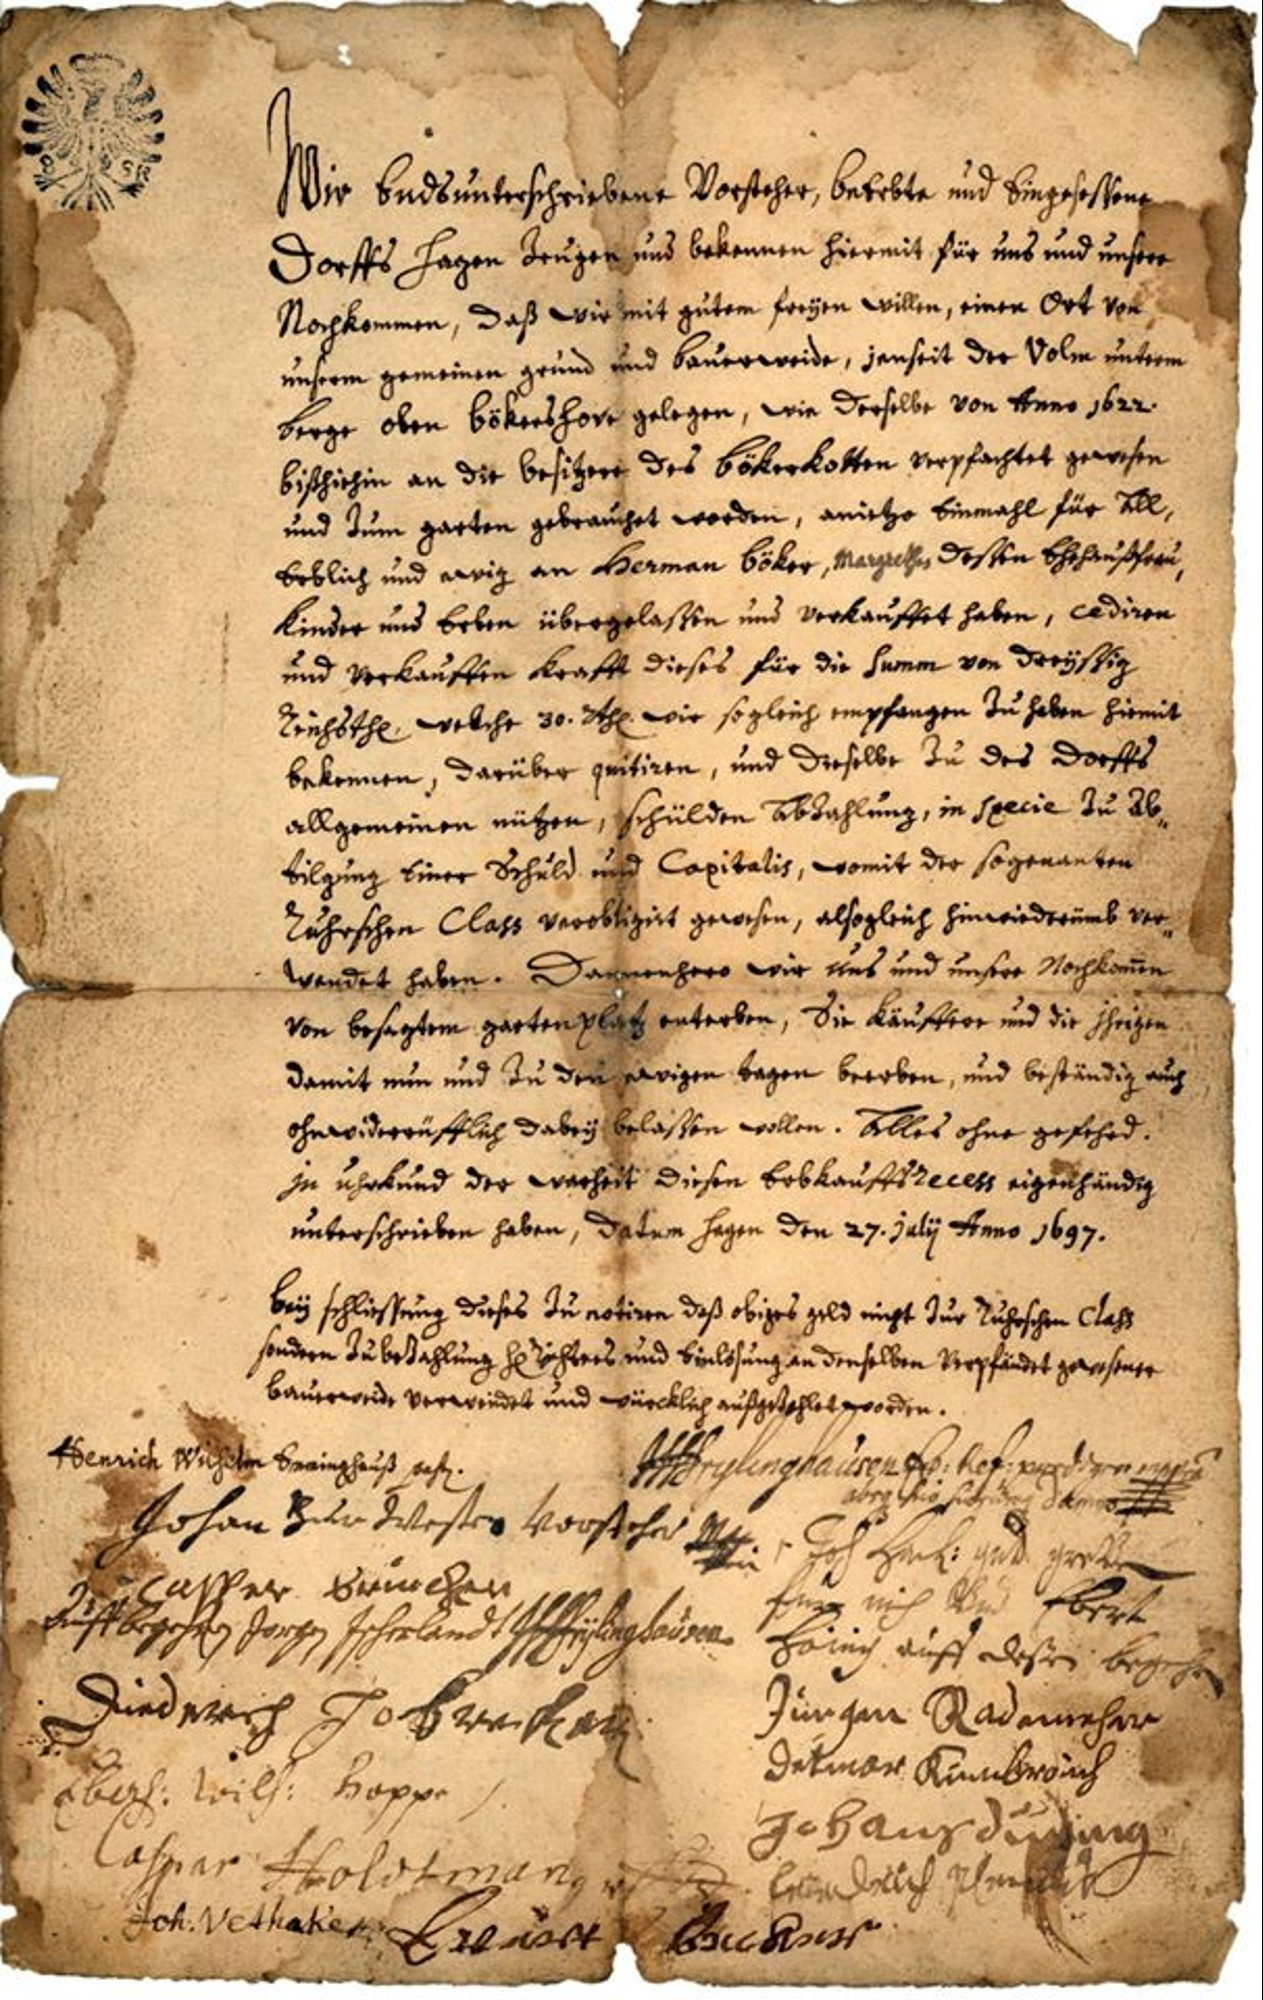 Wir Endsunterschriebene Vorsteher, beErbte und Eingesessene
Dorffs Hagen Zeugen und bekennen hiermit für uns und unsere
Nachkommen, daß wir mit gutem freyen willen, einen Ort von
unserm gemeinen grund und bauerweide, jenseit der Volm unterm
berge oben bökershove gelegen, wie derselbe von Anno 1622.
bißhiehin an die besitzere des bökerkotten verpfachtet gewesen
und zum garten gebrauchet worden, anietzo Einmahl für All,
Erblich und ewig an Herman böker, Margrethe dessen Ehehaußfrau,
Kinder und Erben übergelaßen und verkauffet haben, cediren
und verkauffen krafft dieses für die Summ von dreyssig
Reichsthl. welche 30. Rthl. wir sogleich empfangen zu haben hiemit
bekennen, darüber quitiren, und dieselbe zu des Dorffs
allgemeinen nützen, schülden Abzahlung, in specie zu Ab„
tilgung Einer Schuld und Capitalis, womit der sogenanten
Ruhrschen Class verobligirt gewesen, alsogleich hinwiederümb ver„
wendet haben. Dannenhero wir uns und unsere Nachkomen
von besagtem gartenplatz enterben, Die käuffere und die jhrigen
damit nun und zu den ewigen tagen beerben, und beständig auch
ohnwiderrüfflich dabey belaßen wollen. Alles ohne gefehrd.
jn uhrkund der warheit diesen Erbkauffsrecess eigenhändig
unterschrieben haben, Datum Hagen den 27. julij Anno 1697.
bey schliessung dieses zu notiren daß obiges geld nicht zur Ruhrschen Class
sondern zu bezahlung und Einlösung an denselben verpfändet gewesener
bauerweide verwendet und würcklich außgezahlet worden.
Henrich Wilhelm past.
Frylinghausen
Johan Zur Westen Vorsteher
Casper
Auff begehren Jorgen Frylinghausen
für mich und Ebert
auff desen begehren
Diederich
Jürgen Rademeher
Detmar
Eberh: Wilh: Hoppe
Johans düning
Caspar Holdtman
Joh. Vethake